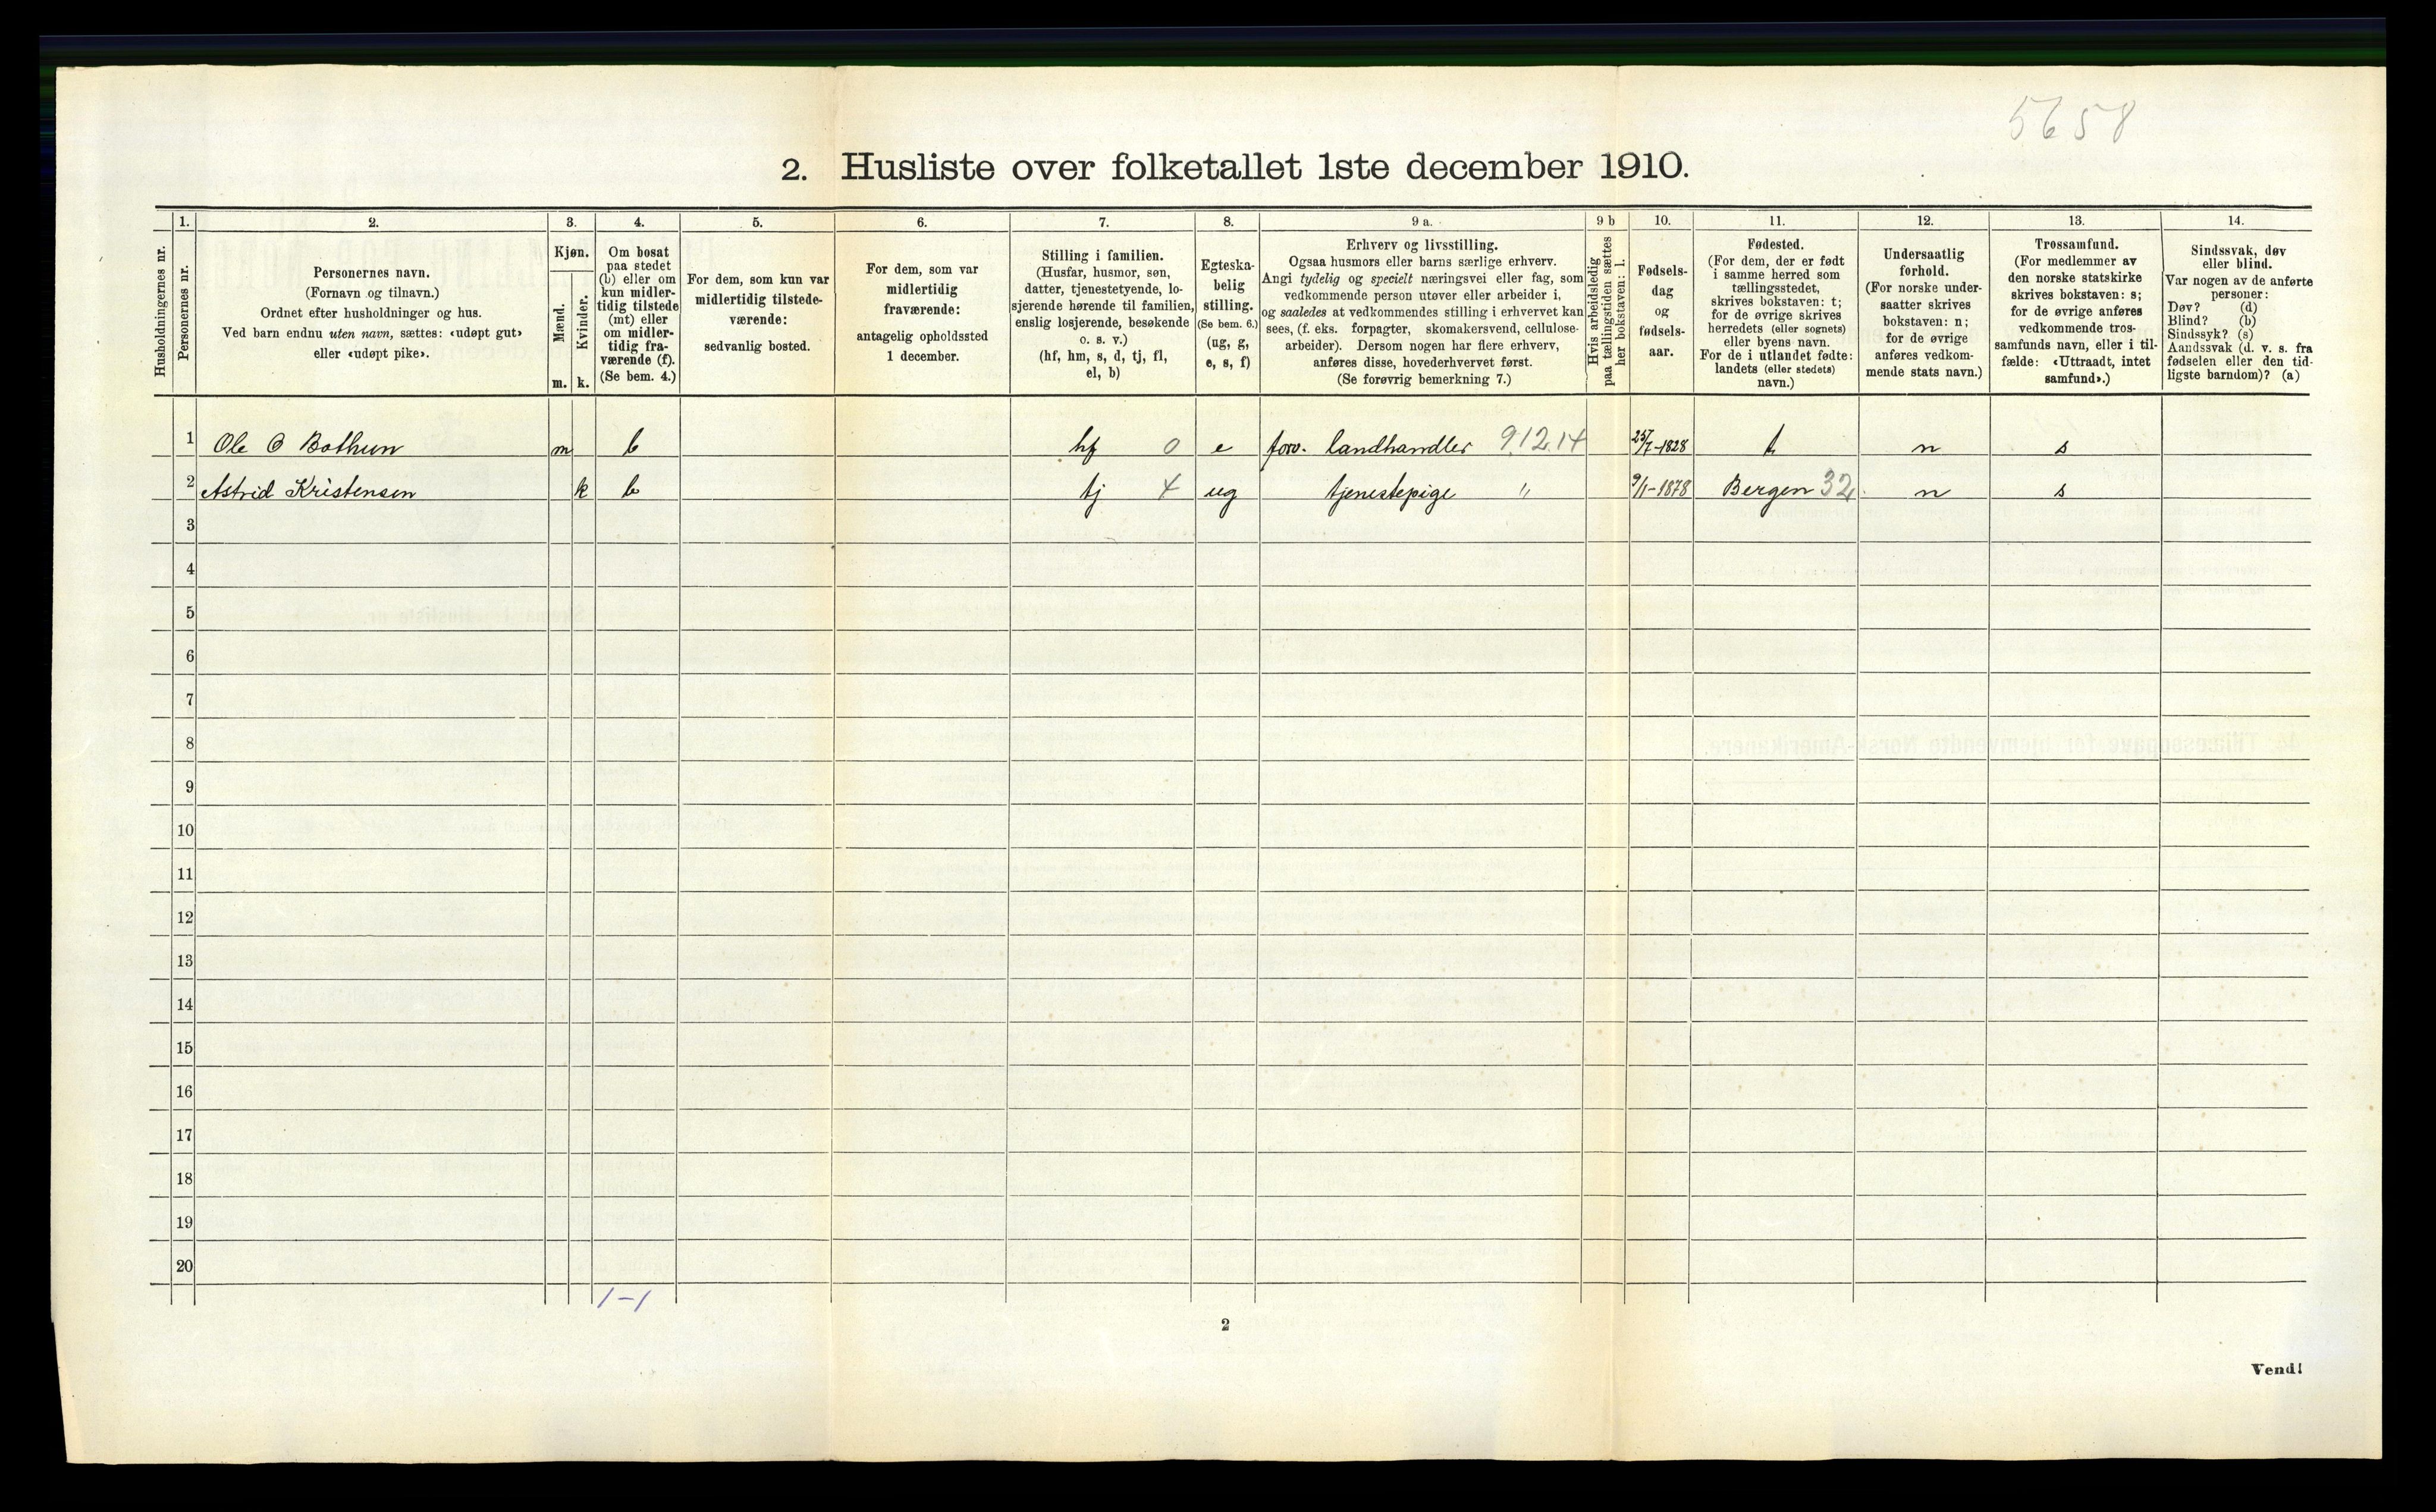 5658
2. Husliste over folketallet 1ste december 1910.
Husholdningernes nr.
1.
Personernes nr.
2.
Personernes navn.
(Fornavn og tilnavn.)
Ordnet efter husholdninger og hus.
Ved barn endnu uten navn, sættes: «udøpt gut»
eller «udøpt pike».
3.
Kjøn.
Mænd.
Kvinder.
m. k.
4.
Om bosat
paa stedet
(b) eller om
kun midler-
tidig tilstede
(mt) eller
om midler-
tidig fra-
værende (f).
(Se bem. 4.)
5.
For dem, som kun var
midlertidig tilstede-
værende:
sedvanlig bosted.
6.
For dem, som var
midlertidig
fraværende:
antagelig opholdssted
1 december.
7.
Stilling i familien.
(Husfar, husmor, søn,
datter, tjenestetyende, lo-
sjerende hørende til familien,
enslig losjerende, besøkende
o. s. v.)
(hf, hm, s, d, tj, fl,
el, b)
8.
Egteska-
belig
stilling.
(Se bem. 6.)
(ug, g,
e, s, f)
9 a.
Erhverv og livsstilling.
Ogsaa husmors eller barns særlige erhverv.
Angi tydelig og specielt næringsvei eller fag, som
vedkommende person utøver eller arbeider i,
og saaledes at vedkommendes stilling i erhvervet kan
sees, (f. eks. forpagter, skomakersvend, cellulose-
arbeider). Dersom nogen har flere erhverv,
anføres disse, hovederhvervet først.
(Se forøvrig bemerkning 7.)
9 b
Hvis arbeidsledig
paa tællingstiden sættes
her bokstaven: l.
10.
Fødsels-
dag
og
fødsels-
aar.
11.
Fødested.
(For dem, der er født
i samme herred som
tællingsstedet,
skrives bokstaven: t;
for de øvrige skrives
herredets (eller sognets)
eller byens navn.
For de i utlandet fødte:
landets (eller stedets)
navn.)
12.
Undersaatlig
forhold.
(For norske under-
saatter skrives
bokstaven: n;
for de øvrige
anføres vedkom-
mende stats navn.)
13.
Trossamfund.
(For medlemmer av
den norske statskirke
skrives bokstaven: s;
for de øvrige anføres
vedkommende tros-
samfunds navn, eller i til-
fælde: «Uttraadt, intet
samfund».)
14.
Sindssvak, døv
eller blind.
Var nogen av de anførte
personer:
Døv? (d)
Blind? (b)
Sindssyk? (s)
Aandssvak (d. v. s. fra
fødselen eller den tid-
ligste barndom)? (a)
1 Ole O Bothun m b hf 0 e forv. landhandler 9.12.14 25/7-1828 t n s
2 Astrid Kristensen k b tj 4 ug tjenestepige " 9/1-1878 Bergen 32 n s
3
4
5
6
7
8
9
10
11
12
13
14
15
16
17
18
19
20
1-1
2
Vend!